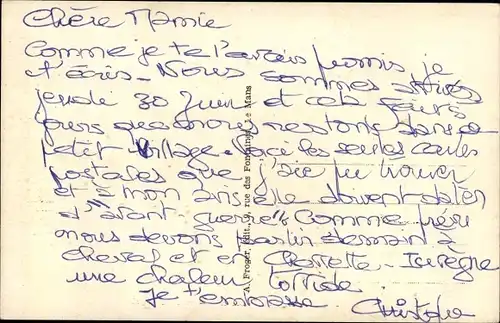 Chère Mamie
Comme je te l'avais promis je
t'écris - Nous sommes arrivés
jeudi 30 Juin et cela fait
jours que nous restons dans ce
petit village. Voici les seules cartes
postales que j'aie pu trouver
et à mon avis elle doivent dater
d'"avant guerre". Comme prévu
nous devons partir demain à
cheval et en charette. Il règne
une chaleur torride.
Je t'embrasse Christophe
A. Froger, Edit., 9, rue des Fontaines, Le Mans